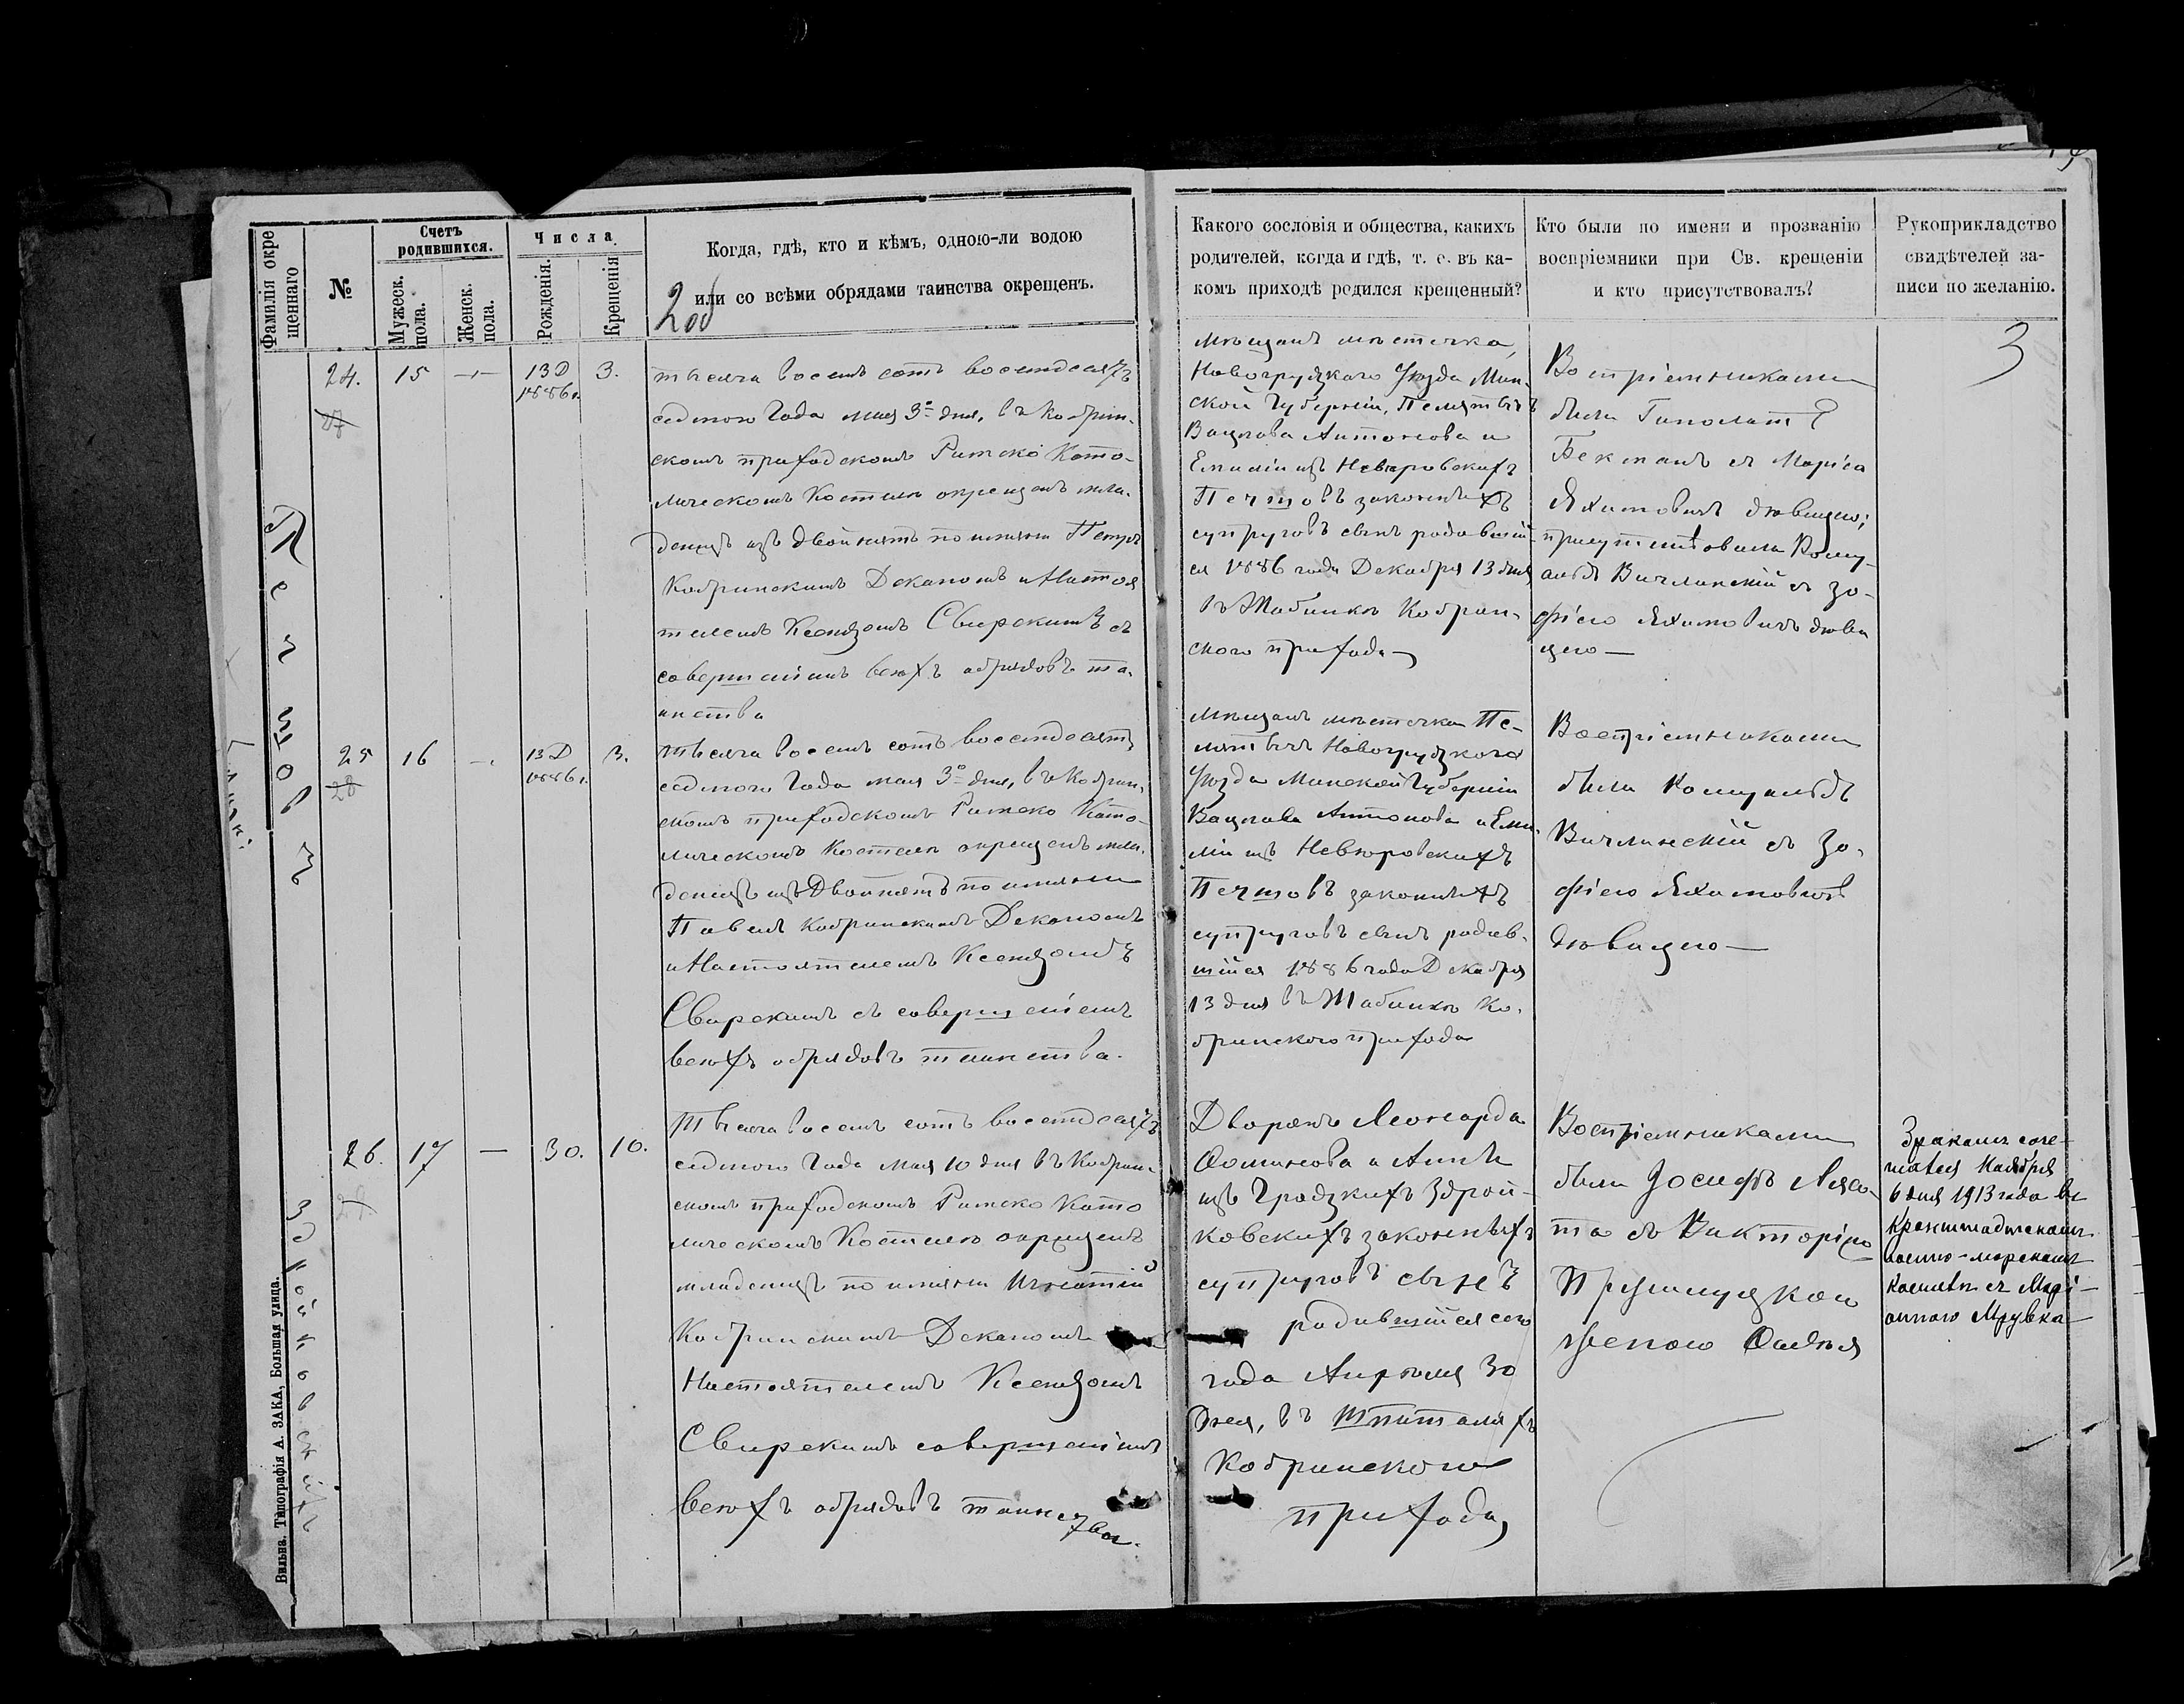 Фамилія окре
щеннаго
№
Счетъ
родившихся.
Мужеск.
пола.
Женск.
пола.
Числа
Рожденія.
Крещенія
Когда, гдѣ, кто и кѣмъ, одною-ли водою
или со всѣми обрядами таинства окрещенъ.
Какого сословія и общества, какихъ
родителей, когда и гдѣ, т. е. въ ка-
комъ приходѣ родился крещенный?
Кто были по имени и прозванію
воспріемники при Св. крещеніи
и кто присутствовалъ?
Рукоприкладство
свидѣтелей за-
писи по желанію.
3
24.
15
13 D
1886 г.
3.
тысяча восемь сотъ восемдесятъ
седмого года мая 3º дня, въ Кобрин-
скомъ приходскомъ Римско Като-
лическомъ Костелѣ окрещенъ мла-
денецъ изъ двойнятъ по имяни Петръ
Кобринскимъ Деканомъ и Настоя
телемъ Ксендзомъ Свирскимъ съ
совершеніимъ всѣхъ обрядовъ та-
инства
мѣщанъ мѣстечка,
Новогрудзкаго Уѣзда Мин-
ской Губерніи,
Вацлава Антонова и
Емиліи изъ Невяровскихъ
Печшовъ законныхъ
супруговъ сынъ родившій-
ся 1886 года Декабря 13 дня
въ Жабинкѣ Кобрин-
ского прихода
Воспріемниками
были Гиполитъ
Бекманъ съ Маріею
Яхимовичъ дѣвицею;
присутствовали Рому-
альдъ Вичлинскій съ Зо-
фіею Яхимовичъ дѣви
цею —
25
28
16
13 D
1886 г.
3.
тысяча восемь сотъ восемдесятъ
седмого года мая 3º дня, въ Кобрин-
скомъ приходскомъ Римско Като-
лическомъ Костелѣ окрещенъ мла-
денецъ изъ Двойнятъ по имяни
Павелъ Кобринскимъ Деканомъ
и Настоятелемъ Ксендзомъ
Свирскимъ съ совершеніемъ
всѣхъ обрядовъ таинства.
мѣщанъ мѣстечка
Новогрудзкого
Уѣзда Минской Губерніи
Вацлава Антонова и Еми-
ліи изъ Невяровскихъ
Печшовъ законныхъ
супруговъ сынъ родив-
шійся 1886 года Декабря
13 дня въ Жабинкѣ Ко-
бринского прихода
Воспріемниками
были Ромуальдъ
Вичлинскій съ Зо-
фіею Яхимовичъ
дѣвицею —
Печшовъ
26.
17
—
30.
10.
Тысяча восемь сотъ восемдесятъ
седмого года мая 10 дня въ Кобрин-
скомъ приходскомъ Римско Като
лическомъ Костелѣ окрещенъ
младенецъ по имяни Игнатій
Кобринскимъ Деканомъ
Настоятелемъ Ксендзомъ
Свирскимъ совершеніимъ
всѣхъ обрядовъ таинства.
Дворянъ Леонарда
Фоминова и Анны
изъ Гродзкихъ Здрой-
ковскихъ законныхъ
супруговъ сынъ
родившійся сего
года Апрѣля 30
дня, въ Шпиталяхъ
Кобринского
прихода,
Воспріемниками
были Іосифъ Ляхо-
та съ Викторіею
женою
Бракомъ соче-
тался Ноября
6 дня 1913 года въ
Кронштадтскомъ
военно-морскомъ
костелѣ съ Марі-
анною Мрувка
Здройковскихъ
Вильна. Типографія А. ЗАКА, Большая улица.